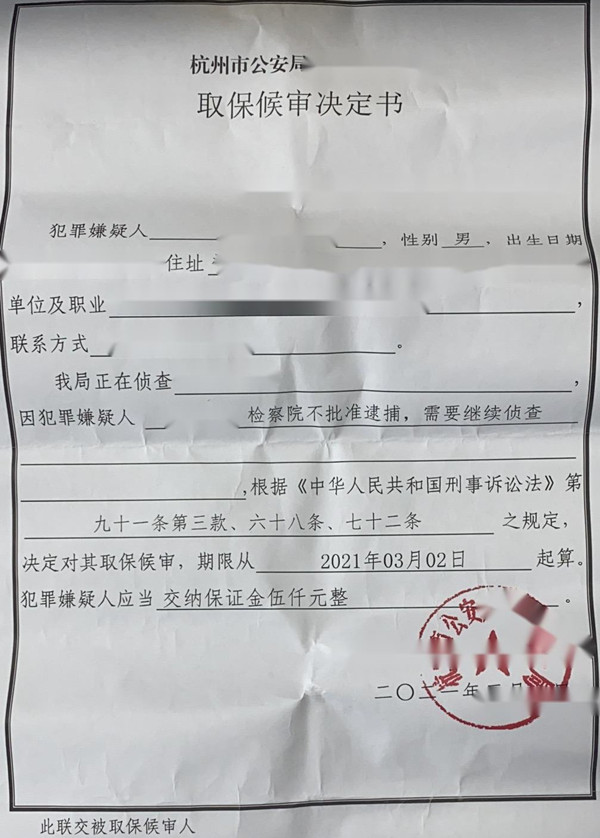 杭州市公安局
取保候审决定书
犯罪嫌疑人，性别 男 ，出生日期
住址
单位及职业，
联系方式。
我局正在侦查，
因犯罪嫌疑人 检察院不批准逮捕，需要继续侦查
,根据《中华人民共和国刑事诉讼法》第
九十一条第三款、六十八条、七十二条 之规定，
决定对其取保候审，期限从 2021年03月02日 起算。
犯罪嫌疑人应当 交纳保证金伍仟元整 。
公安
二〇二一年
此联交被取保候审人